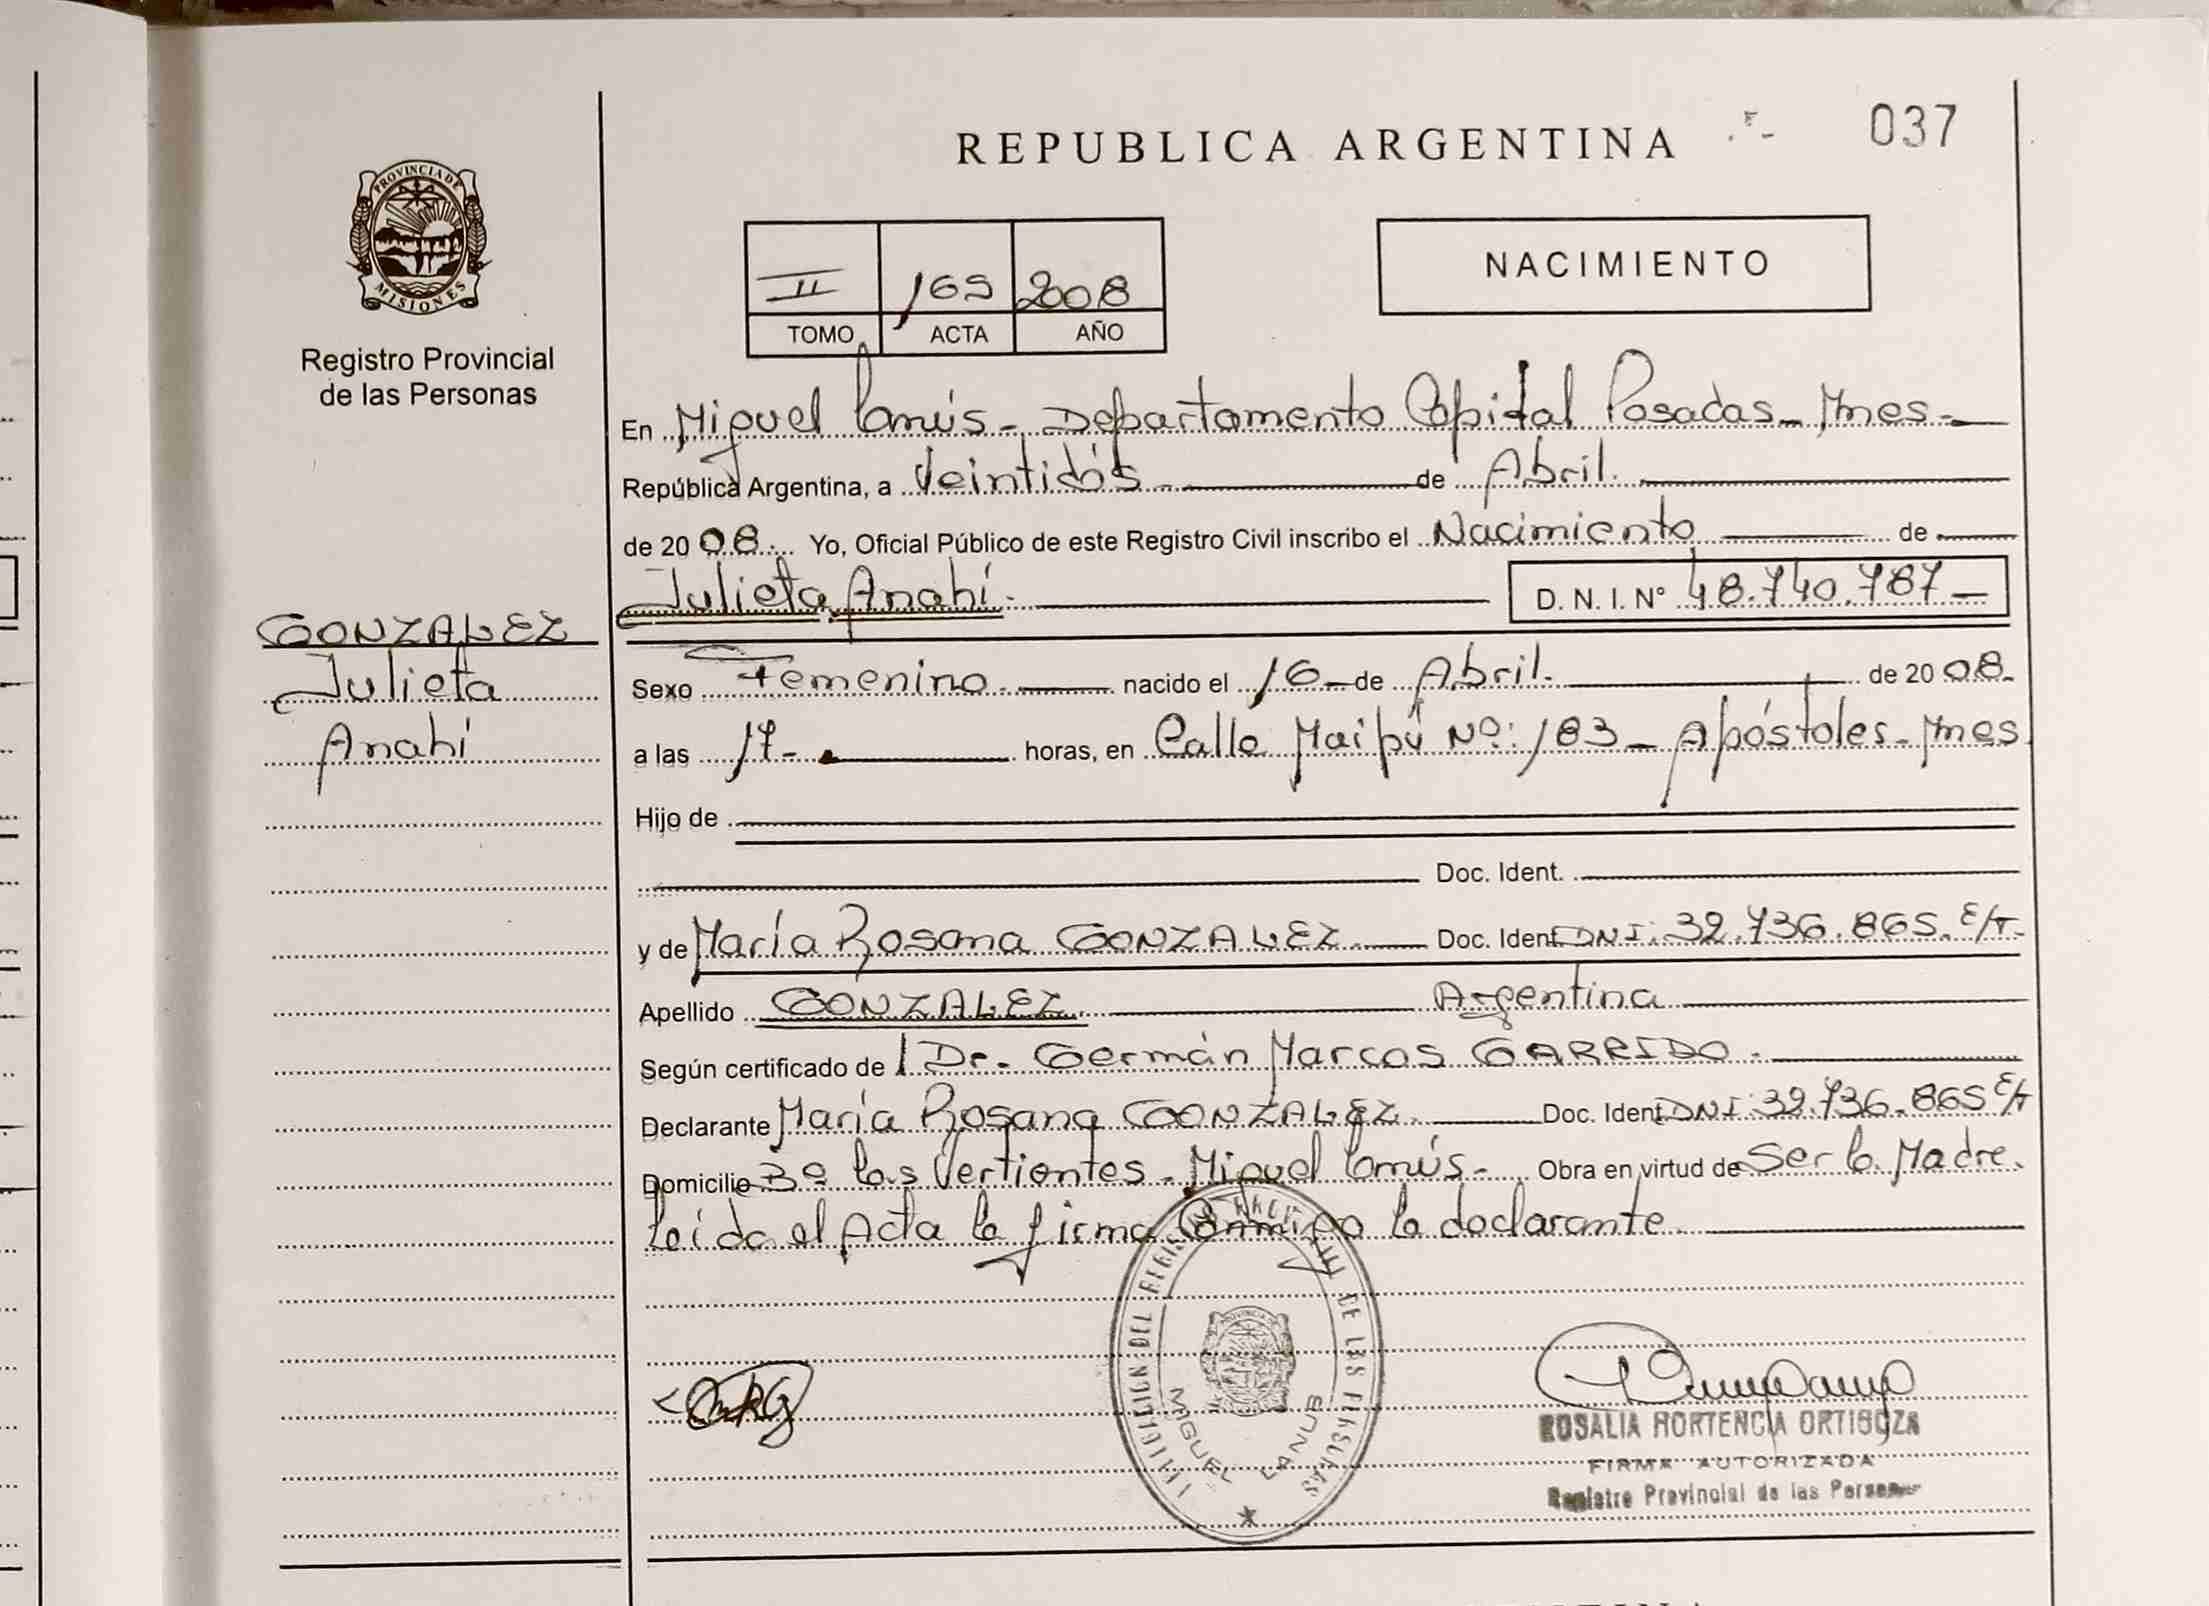 REPUBLICA ARGENTINA
037
PROVINCIA DE
MISIONES
Registro Provincial
de las Personas
NACIMIENTO
II 169 2008
TOMO ACTA AÑO
En Miguel Lanús - Departamento Capital Posadas - Mnes -
República Argentina, a Veintidós - de Abril.
de 2008. Yo, Oficial Público de este Registro Civil inscribo el Nacimiento de
Julieta Anahí. D. N. I. N° 48.740.787 -
GONZALEZ
Julieta
Anahí
Sexo Femenino. nacido el 16 - de Abril. de 2008.
a las 17 - horas, en Calle Maipú Nº: 183 - Apóstoles - Mnes
Hijo de
Doc. Ident.
y de María Rosana GONZALEZ. Doc. Ident DNI: 32.736.865. E/T.
Apellido GONZALEZ. Argentina
Según certificado de l Dr. Germán Marcos GARRIDO.
Declarante María Rosana GONZALEZ. Doc. Ident DNI: 32.736.865 E/T
Domicilio Bº las Vertientes - Miguel Lanús - Obra en virtud de Ser la Madre.
Leída el Acta la firma Conmigo la declarante.
DEL DE LAS PERSONAS
MIGUEL LANUS
ROSALIA HORTENCIA ORTIGOZA
FIRMA AUTORIZADA
Registro Provincial de las Personas